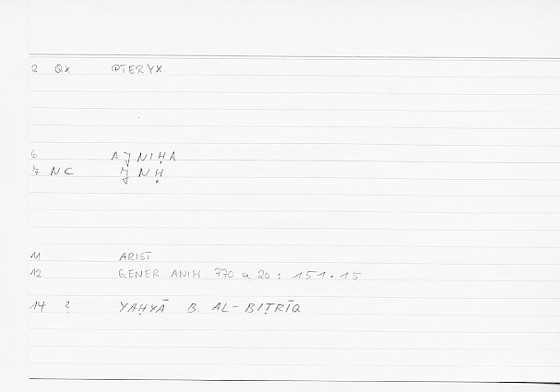 2 Qx PTERYX
6 AJNIḤA
7 NC JNḤ
11 ARIST
12 GENER ANIM 770 a 20 : 151.15
14 2 YAḤYĀ B. AL-BIṬRĪQ